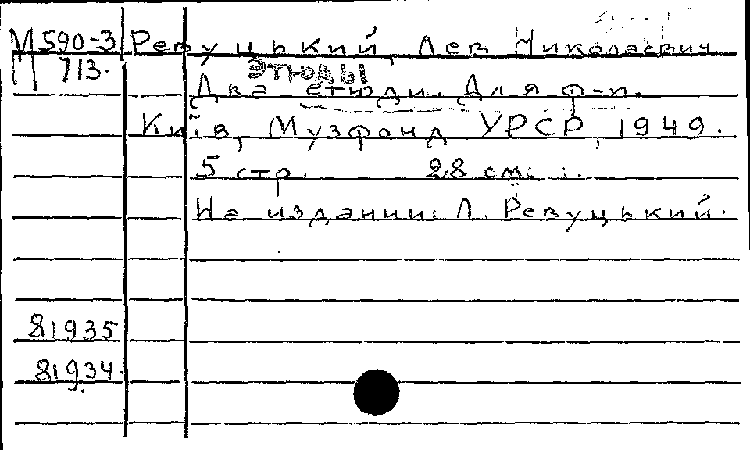 М590-3 Ревуцький, Лев Николаевич
П 713. этюды
Два етюди. Для ф-п.
Київ, Музфонд УРСР, 1949.
5 стр. 28 см.
На издании: Л. Ревуцький.
81935
81934